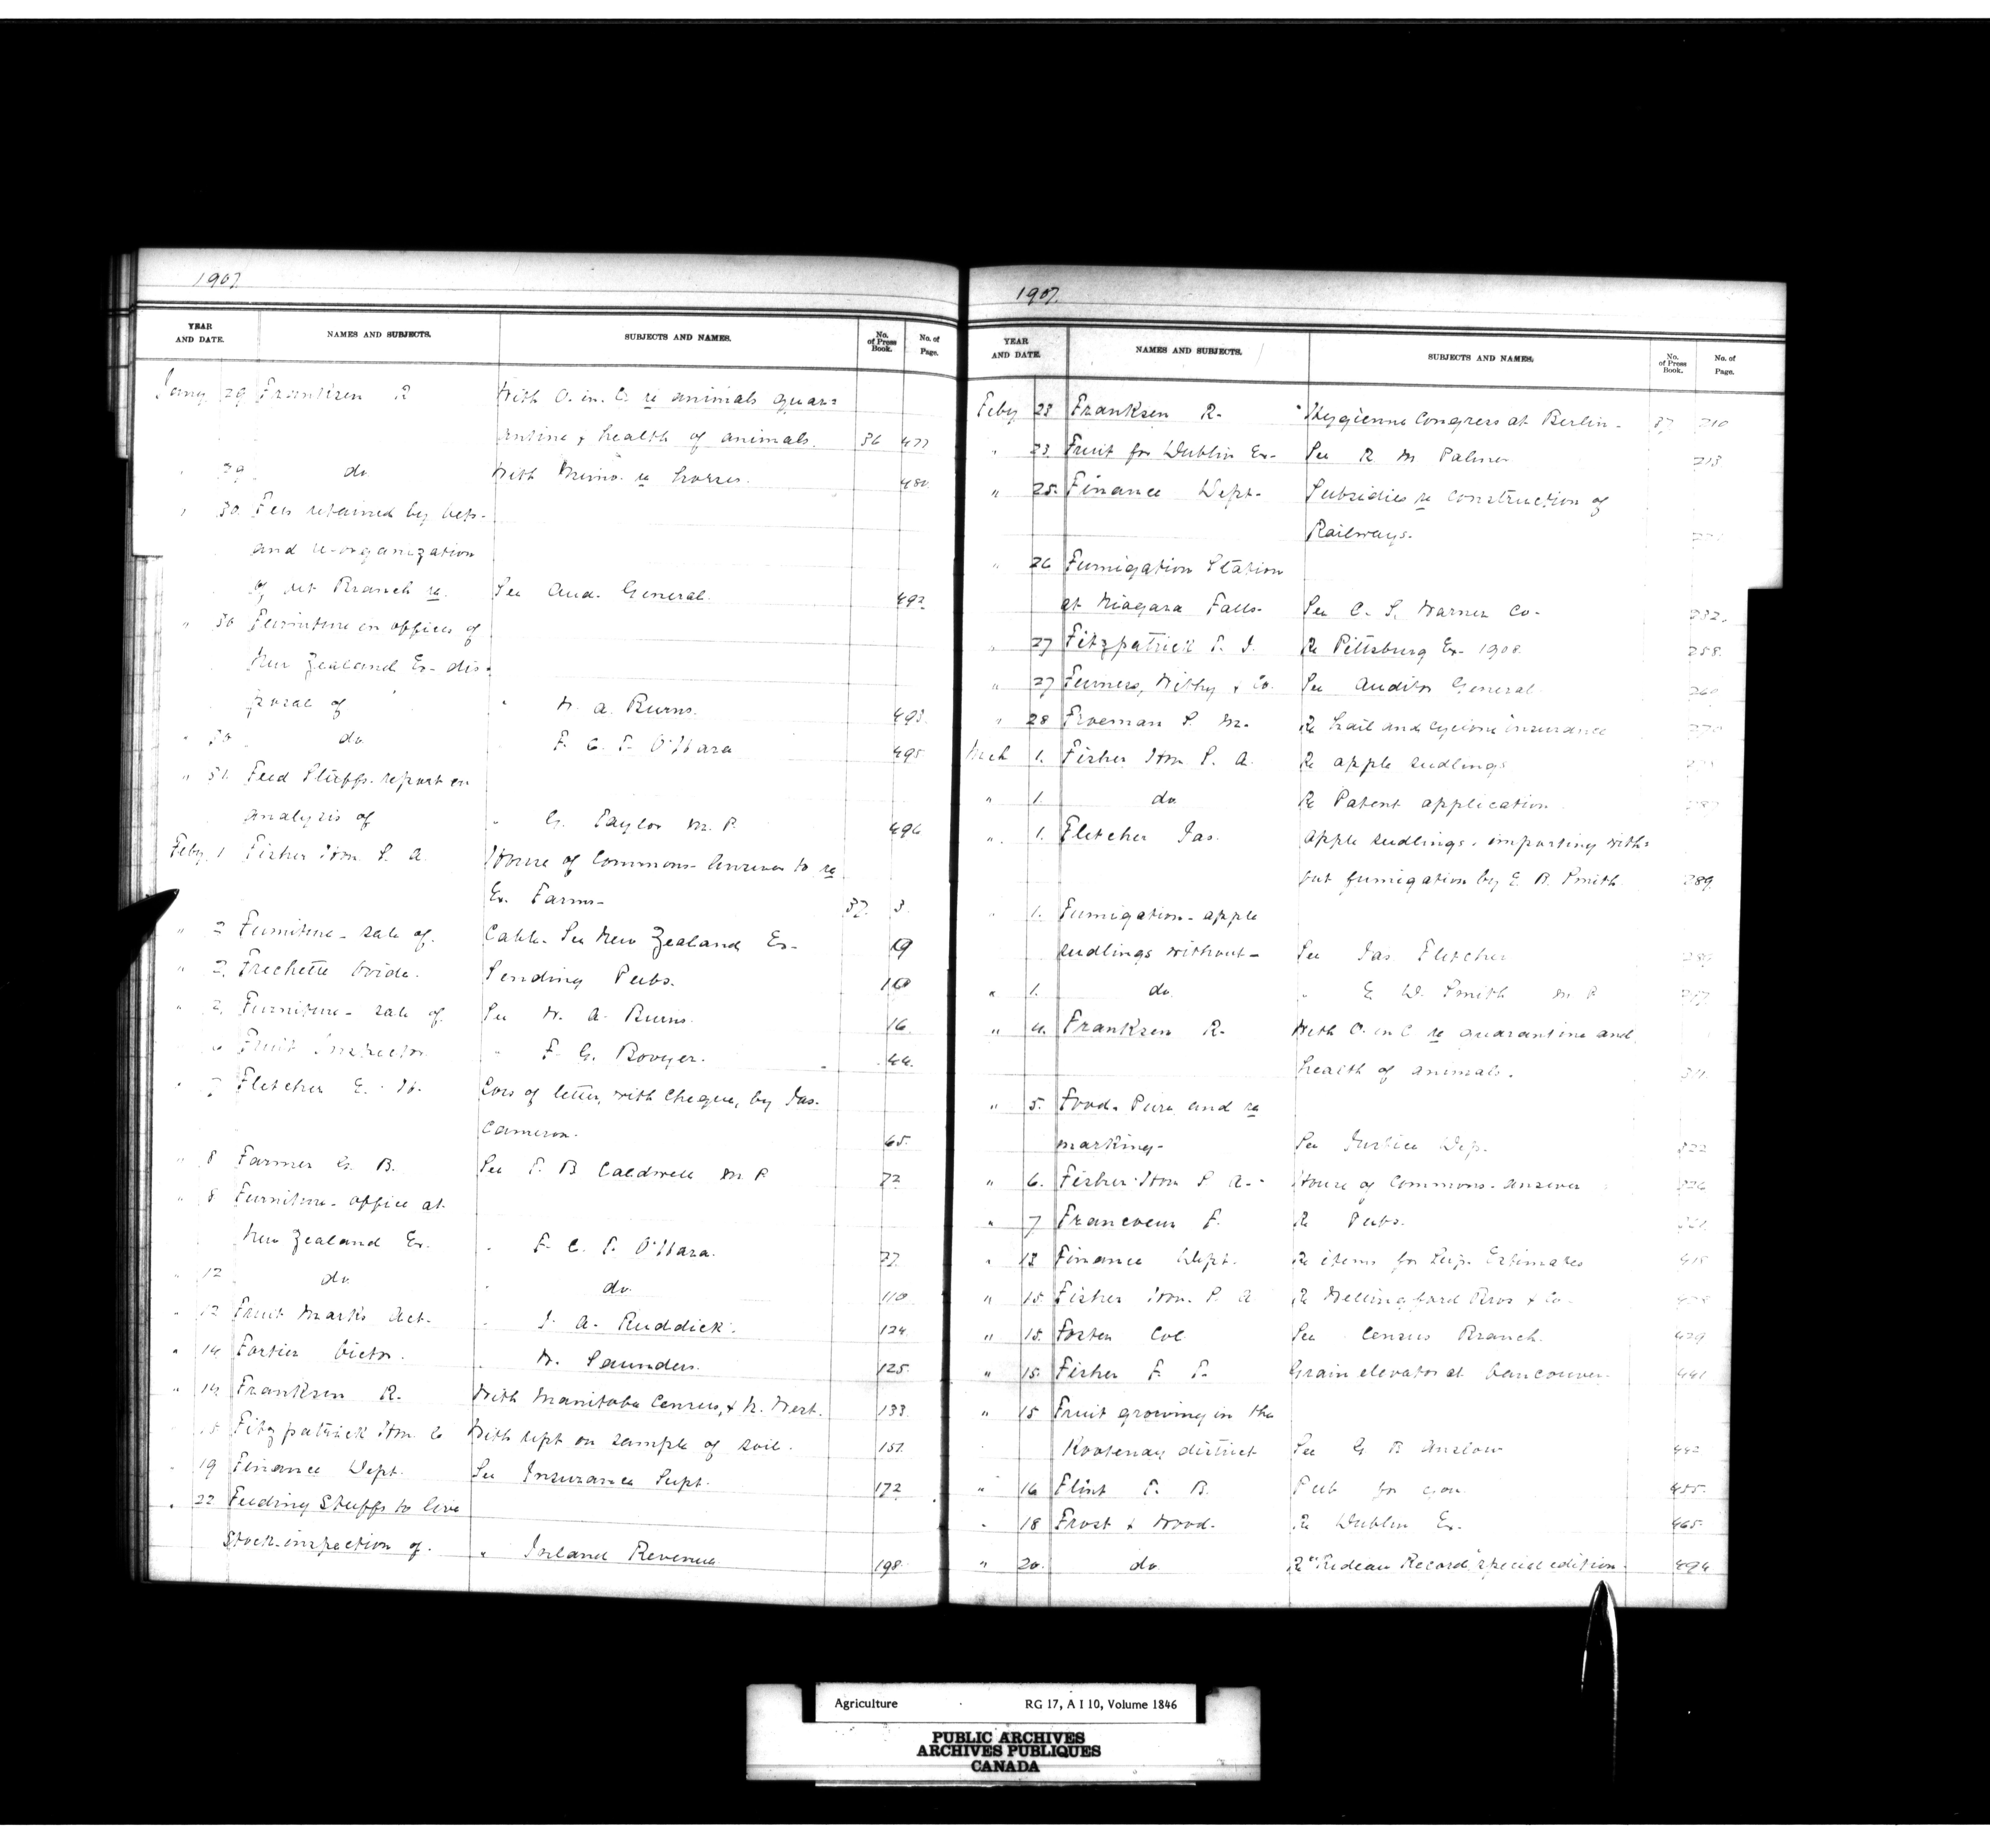 1907
YEAR AND DATE. NAMES AND SUBJECTS. SUBJECTS AND NAMES. No. of Press Book. No. of Page.
Jany. 29 Franksen R With O. in. C. re animals quar=
antine & health of animals. 36 477
" 29 do With Memo. re horses. 480
" 30. Fees retained by vets-
and re-organization
of vet Branch re. See Aud. General. 492
" 30 Furniture in offices of
New Zealand Ex- dis=
posal of " W. A. Burns. 493.
" 30 do F. C. T. O'Hara 495.
" 31. Feed Stuffs- report on
analysis of " G. Taylor M. P. 496
Feby. 1 Fisher Hon. S. A. House of Commons- Answer to re
Ex. Farms- 37. 3.
" 2 Furniture- sale of. Cable- See New Zealand Ex- 19
" 2. Frechette Ovide. Sending Pubs. 10
" 2. Furniture- sale of See W. A. Burns. 16.
" Fruit Inspector " F. G. Bovyer. 44.
" 7 Fletcher E. H. Loss of letter, with cheque, by Jas.
Cameron. 65.
" 8 Farmer G. B. See T. B Caldwell M. P 72
" 8 Furniture- office at
New Zealand Ex. " F. C. T. O'Hara. 77.
" 12 do. " do. 110
" 12 Fruit Marks Act. " J. A. Ruddick. 124
" 14 Fortier Victor. " W. Saunders. 125.
" 14. Franksen R. With Manitoba Census, & N. West. 133.
" 18 Fitzpatrick Hon. C With rept on sample of soil. 157
" 19 Finance Dept. See Insurance Supt. 172
" 22 Feeding Stuffs to live
Stock-inspection of. " Inland Revenue 198.
1907.
YEAR AND DATE. NAMES AND SUBJECTS. SUBJECTS AND NAMES. No. of Press Book. No. of Page.
Feby 23 Franksen R. "Hygienne Congress at Berlin. 37. 210
" 23. Fruit for Dublin Ex- See R. M Palmer 213.
" 25. Finance Dept. Subsidies re construction of
Railways.
" 26 Fumigation Station
at Niagara Falls- See C. S. Warner Co- 232.
" 27 Fitzpatrick T. J. Re Pittsburg Ex- 1908. 258.
" 27 Furness, Withy & Co. See Auditor General. 260.
" 28 Froeman S. M. Re hail and cyclone insurance 270
Mch 1. Fisher Hon S. A. Re apple seedlings
" 1. do. Re Patent application
" 1. Fletcher Jas. Apple seedlings. importing with=
out fumigation by E. D. Smith. 289.
" 1. Fumigation- apple
seedlings without- See Jas Fletcher 289
" 1. do. " E D. Smith M P
" 4. Franksen R. With O. in C re quarantine and
health of animals. 311.
" 5. Food. Pure and re
marking- See Justice Dep. 322
" 6. Fisher Hon S A. House of Commons- answer 326
" 7 Francoeur F. Re Pubs.
" 13 Finance Dept. Re items for Sup. Estimates 418
" 15 Fisher Hon. S. A Re Wellingford Bros & Co-
" 15. Foster Col See Census Branch. 429
" 15. Fisher F. T. Grain elevator at Vancouver. 441
" 15 Fruit growing in the
Kootenay district See G B Anslow 442
" 16 Flint T. B. Pub for
" 18 Frost & Wood. Re Dublin Ex. 465.
" 20. do Re "Rideau Record" special edition. 494
Agriculture RG 17, A I 10, Volume 1846
PUBLIC ARCHIVES
ARCHIVES PUBLIQUES
CANADA